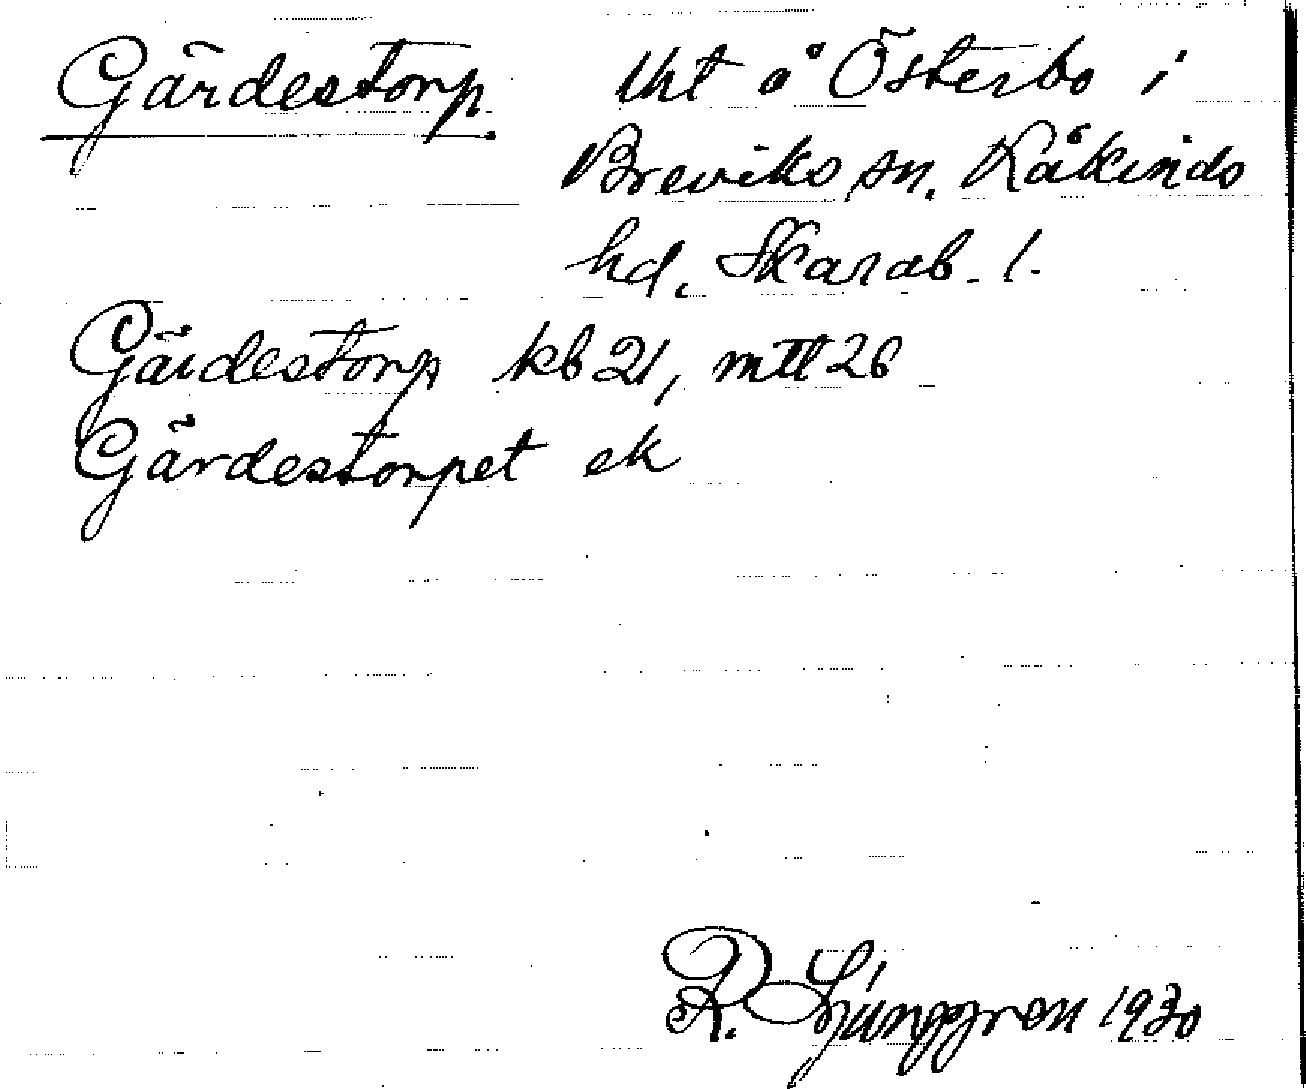 Gärdestorp Uht å Österbo i
Breviks sn. Kåkinds
hd. Skarab. l.
Gärdestorp kb 21, mtl 26
Gärdestorpet ek
R. Ljunggren 1930